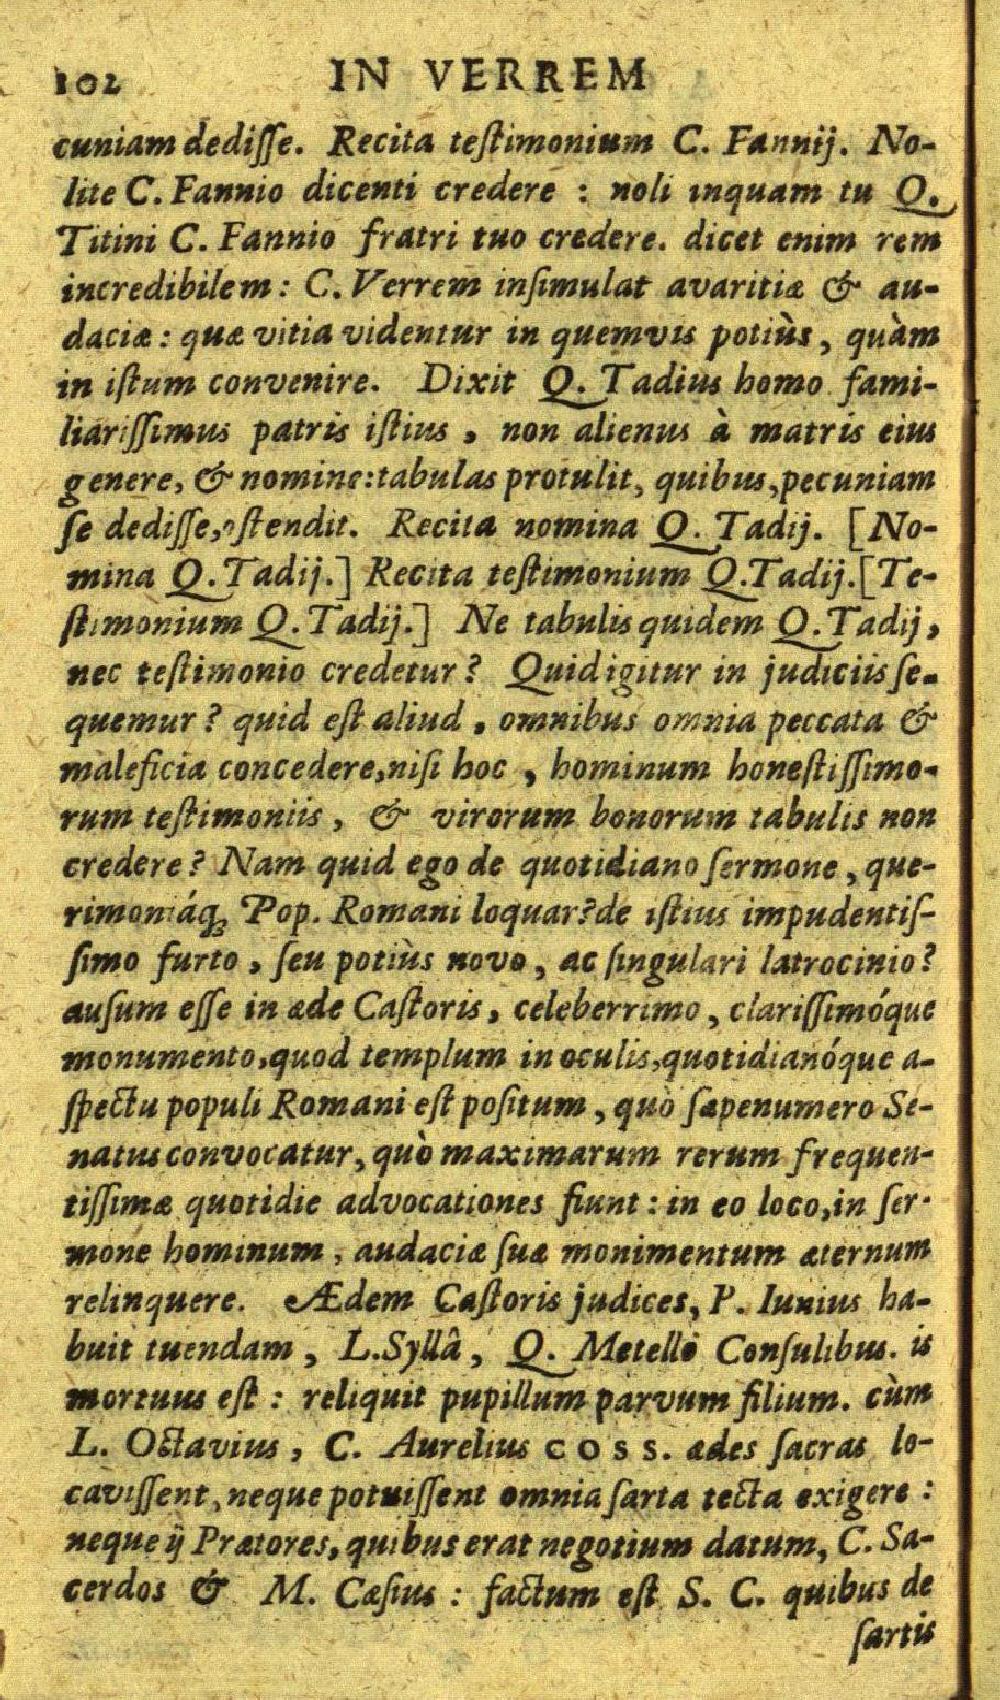 102 IN VERREM
cuniam dediſſe. Recita teſtimonium C. Fannij. No-
lite C. Fannio dicenti credere : noli inquam tu Q.
Titini C. Fannio fratri tuo credere. dicet enim rem
incredibilem: C. Verrem inſimulat avaritiæ & au-
daciæ: quæ vitia videntur in quemvis potiùs, quàm
in iſtum convenire. Dixit Q. Tadius homo fami-
liariſſimus patris iſtius, non alienus à matris eius
genere, & nomine: tabulas protulit, quibus, pecuniam
ſe dediſſe, oſtendit. Recita nomina Q. Tadij. [No-
mina Q. Tadij.] Recita teſtimonium Q. Tadij. [Te-
ſtimonium Q. Tadij.] Ne tabulis quidem Q. Tadij,
nec teſtimonio credetur? Quid igitur in judiciis ſe-
quemur? quid eſt aliud, omnibus omnia peccata &
maleficia concedere, niſi hoc, hominum honeſtiſſimo-
rum teſtimoniis, & virorum bonorum tabulis non
credere? Nam quid ego de quotidiano ſermone, que-
rimoniáq; Pop. Romani loquar? de iſtius impudentiſ-
ſimo furto, ſeu potiùs novo, ac ſingulari latrocinio?
auſum eſſe in æde Caſtoris, celeberrimo, clariſſimóque
monumento, quod templum in oculis, quotidianóque a-
ſpectu populi Romani eſt poſitum, quò ſæpenumero Se-
natus convocatur, quò maximarum rerum frequen-
tiſſimæ quotidie advocationes fiunt: in eo loco, in ſer-
mone hominum, audaciæ ſuæ monimentum æternum
relinquere. Ædem Caſtoris judices, P. Iunius ha-
buit tuendam, L. Syllâ, Q. Metello Conſulibus. is
mortuus eſt: reliquit pupillum parvum filium. cùm
L. Octavius, C. Aurelius COSS. ædes ſacras lo-
caviſſent, neque potuiſſent omnia ſarta tecta exigere:
neque ij Prætores, quibus erat negotium datum, C. Sa-
cerdos & M. Cæſius: factum eſt S. C. quibus de
ſartis